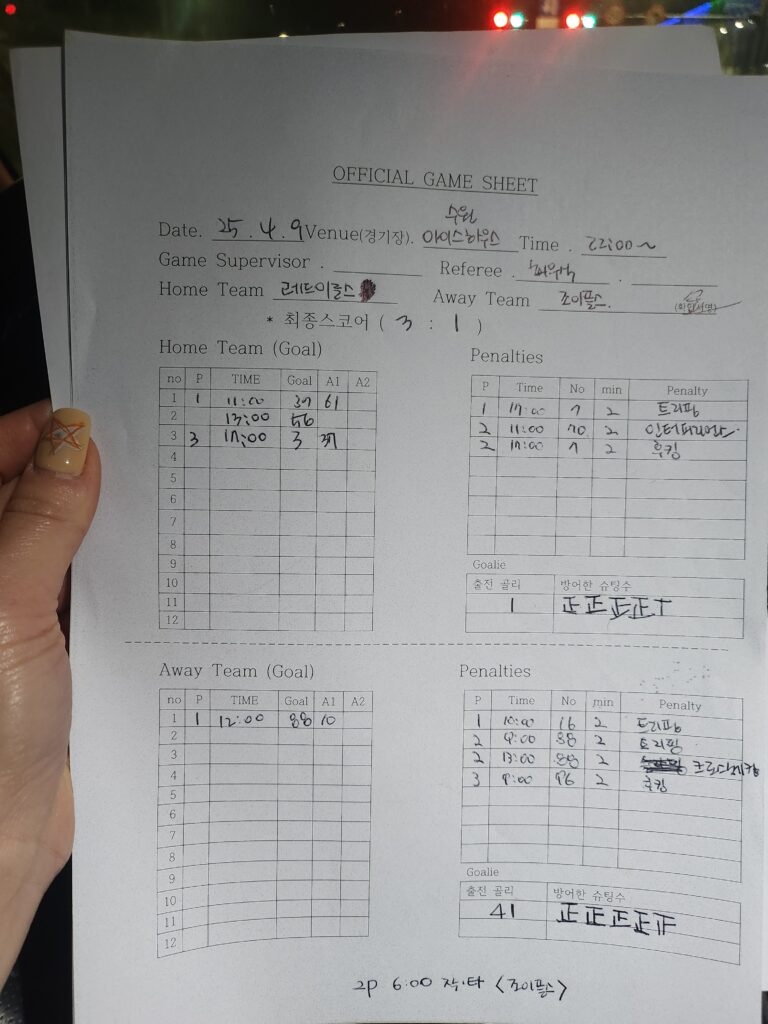 OFFICIAL GAME SHEET
수원
Date. 25 . 4 . 9 Venue(경기장). 아이스하우스 Time . 22:00~
Game Supervisor . Referee . .
Home Team 레드이글스 Away Team 조이플스. (회장서명)
* 최종스코어 ( 3 : 1 )
Home Team (Goal)
no P TIME Goal A1 A2
1 1 11:00 37 61
2 13:00 56
3 3 17:00 3 37
4
5
6
7
8
9
10
11
12
Penalties
P Time No min Penalty
1 17:00 7 2 트리핑
2 11:00 70 2
2 17:00 7 2 후킹
Goalie
출전 골리 방어한 슈팅수
1 正 正 正 正 丅
Away Team (Goal)
no P TIME Goal A1 A2
1 1 12:00 88 10
2
3
4
5
6
7
8
9
10
11
12
Penalties
P Time No min Penalty
1 10:00 16 2 트리핑
2 9:00 88 2 트리핑
2 13:00 88 2 크로스체킹
3 9:00 96 2 후킹
Goalie
출전 골리 방어한 슈팅수
41 正 正 正 正
2p 6:00 작·타 <조이플스>